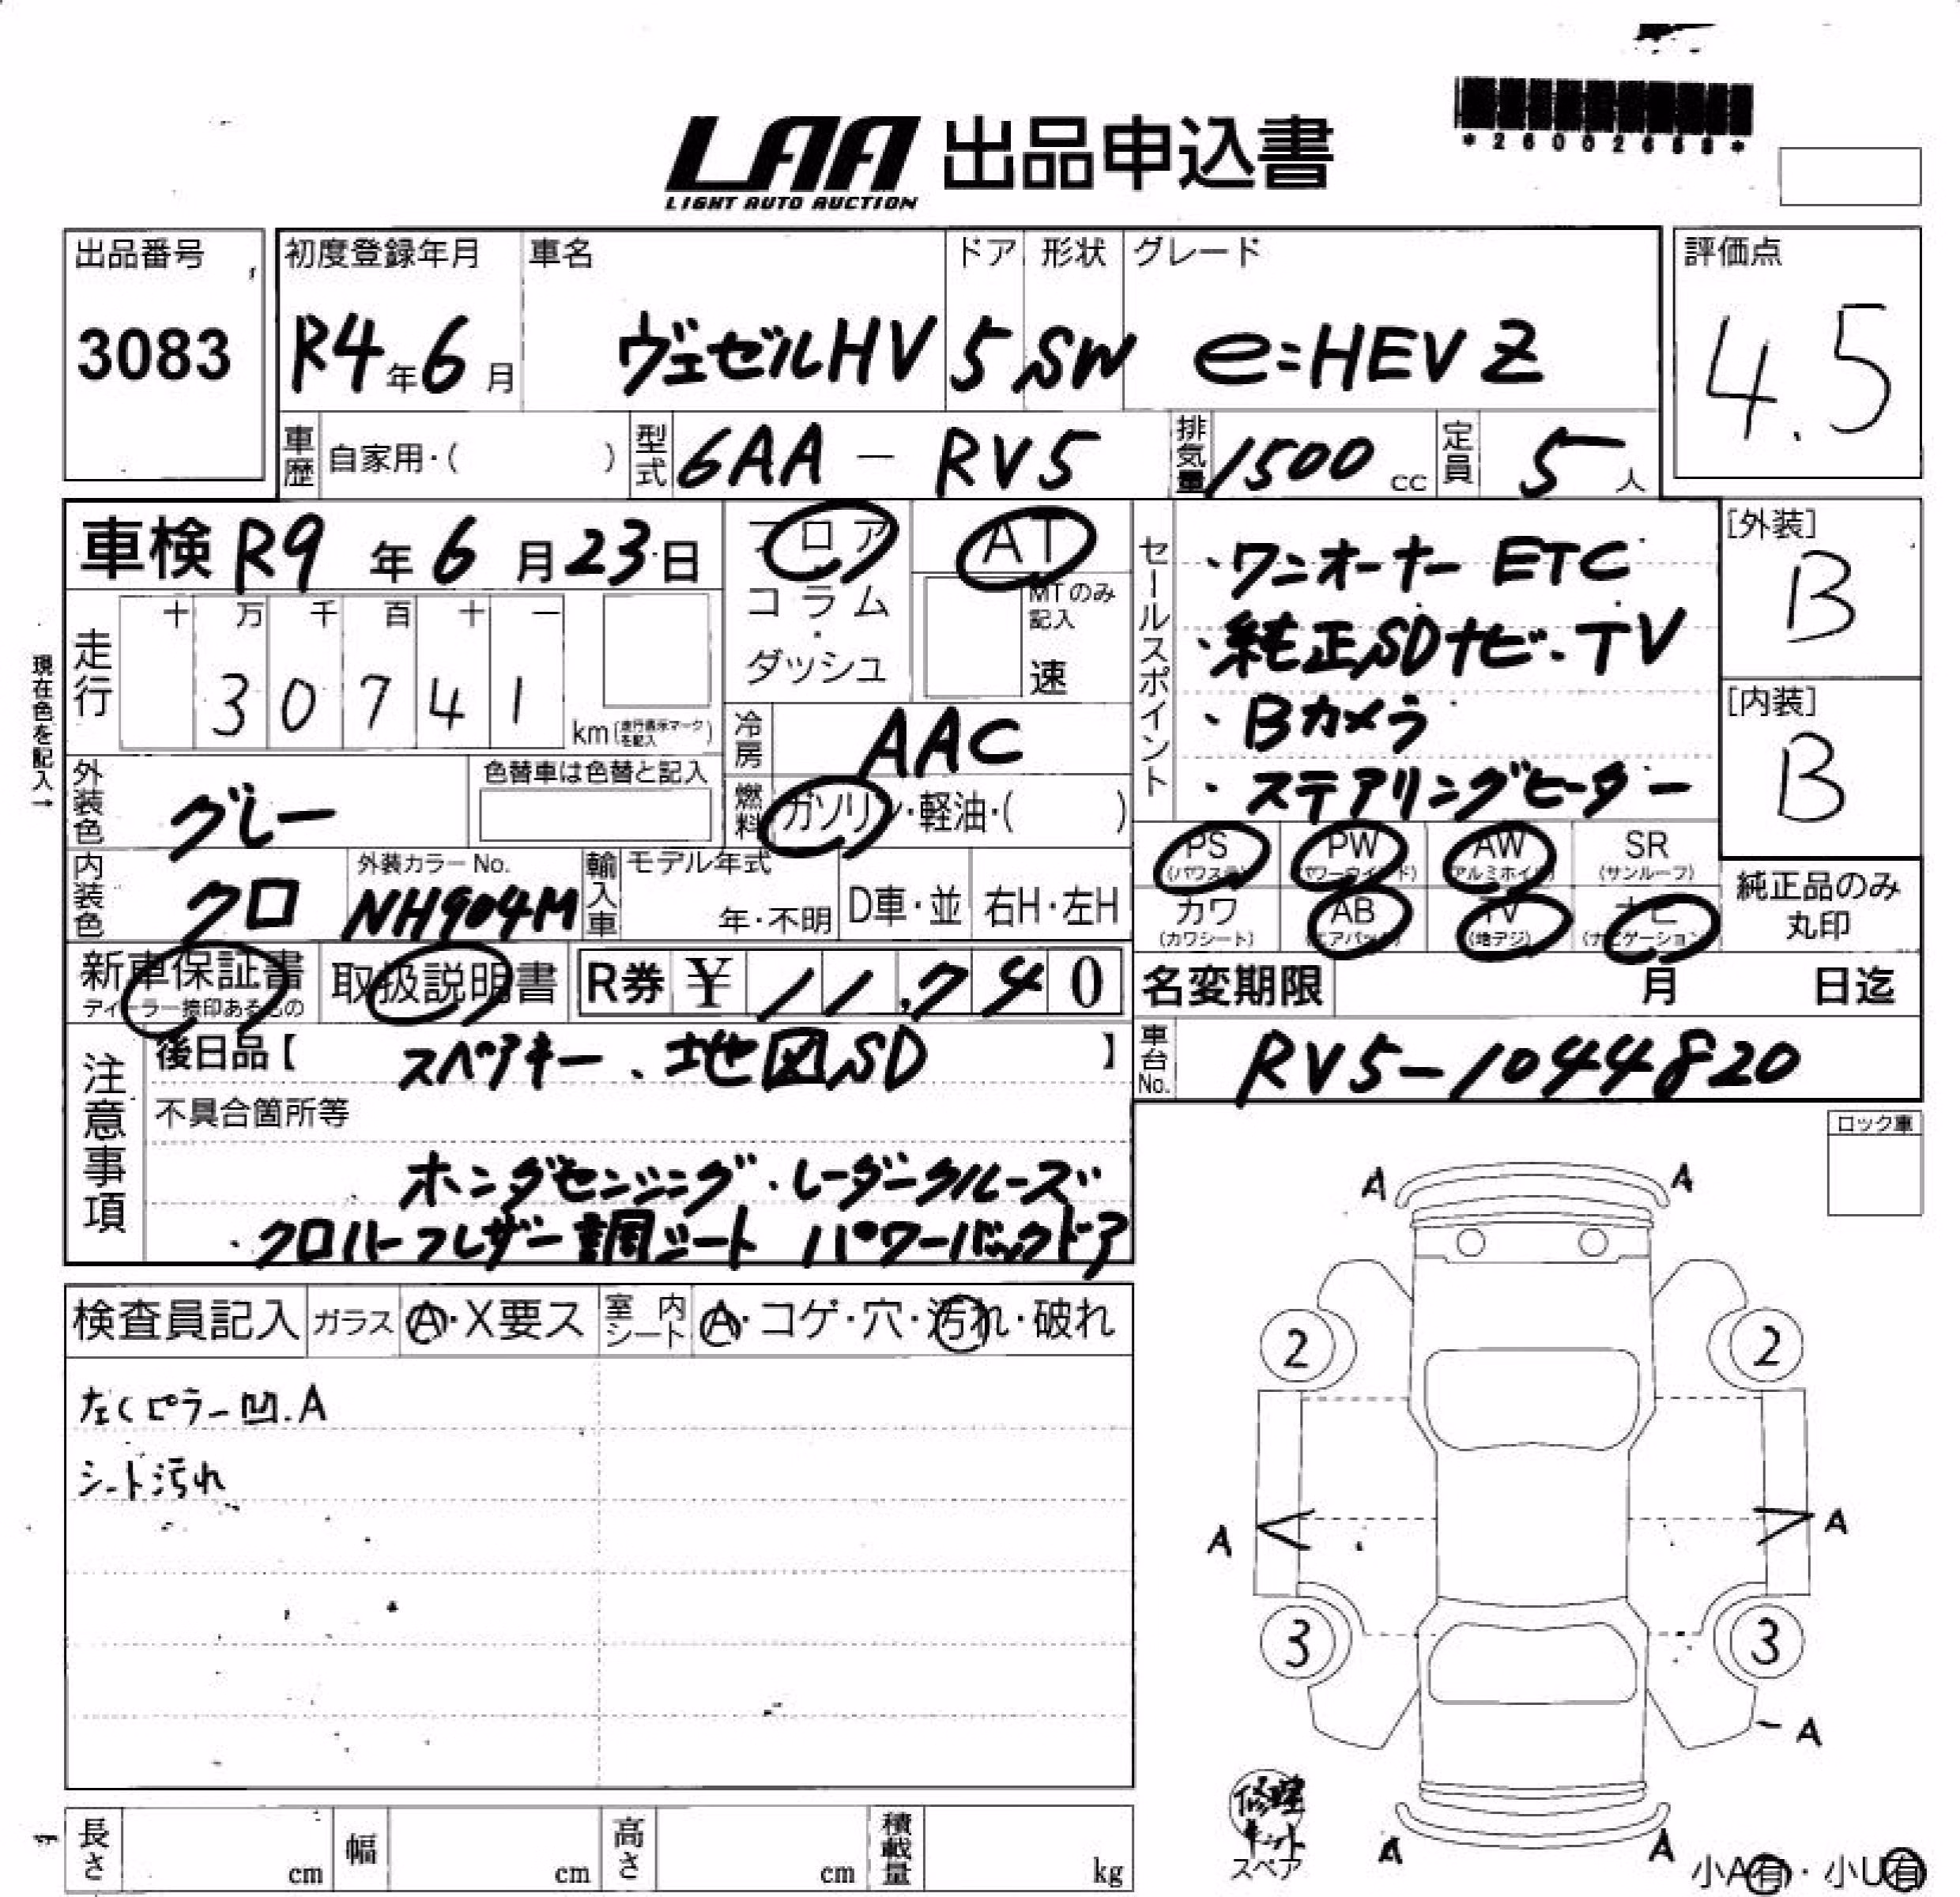 *26002688*
LAA 出品申込書
LIGHT AUTO AUCTION
出品番号 初度登録年月 車名 ドア 形状 グレード 評価点
3083 R4年6月 ヴェゼルHV 5 SW e:HEV Z 4.5
車歴 自家用・( ) 型式 6AA - RV5 排気量 1500 cc 定員 5人
車検 R9年6月23日 フロア AT
コラム・ダッシュ MTのみ記入 速
セールスポイント
・ワンオーナー ETC
・純正SDナビ・TV
・Bカメラ
・ステアリングヒーター
[外装] B
[内装] B
現在色を記入→
走行 十 万 千 百 十 一
30741 km (走行表示マークを記入)
冷房 AAC
外装色 グレー 色替車は色替と記入
燃料 ガソリン・軽油・( )
内装色 クロ 外装カラーNo. NH904M
輸入車 モデル年式 年・不明 D車・並 右H・左H
PS (パワステ) PW (パワーウインド) AW (アルミホイル) SR (サンルーフ)
カワ (カワシート) AB (エアバッグ) TV (地デジ) ナビ (ナビゲーション)
純正品のみ丸印
新車保証書 ディーラー捺印あるもの 取扱説明書 R券 ¥11,740
名変期限 月 日迄
注意事項
後日品【スペアキー、地図SD】
車台No. RV5-1044820
不具合箇所等
ホンダセンシング・レーダークルーズ
・クロハーフレザー調シート パワーバックドア
ロック車
検査員記入 ガラス A・X要ス 室内シート A・コゲ・穴・汚れ・破れ
左Cピラー凹.A
シート汚れ
A A
2 2
A A
3 3
A
修理キット
スペア
A A
小A有・小U有
長さ cm 幅 cm 高さ cm 積載量 kg